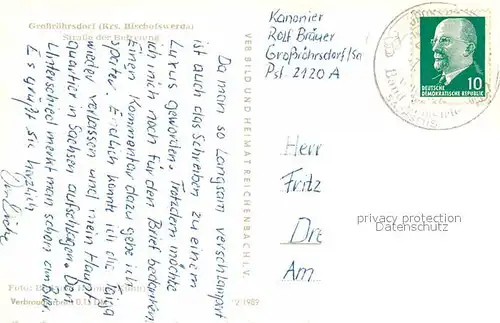 Großröhrsdorf (Krs. Bischofswerda)
Straße der Befreiung
Da man so langsam verschlampert
ist auch das Schreiben zu einem
Luxus geworden. Trotzdem möchte
ich mich noch für den Brief bedanken.
Einen Kommentar dazu gebe ich
später. Endlich konnte ich die
wieder verlassen und mein Haupt
quartier in Sachsen aufschlagen. Der
Unterschied merkt man schon am Bier.
Es grüßt sie herzlich
VEB BILD UND HEIMAT REICHENBACH I. V.
Foto:
Verbraucherpreis 0,15 DM
Kanonier
Rolf Bräuer
Großröhrsdorf/Sa
Psf. 2120 A
DEUTSCHE
DEMOKRATISCHE REPUBLIK
10
Herr
Fritz
Dre
Am
privacy protection
Datenschutz